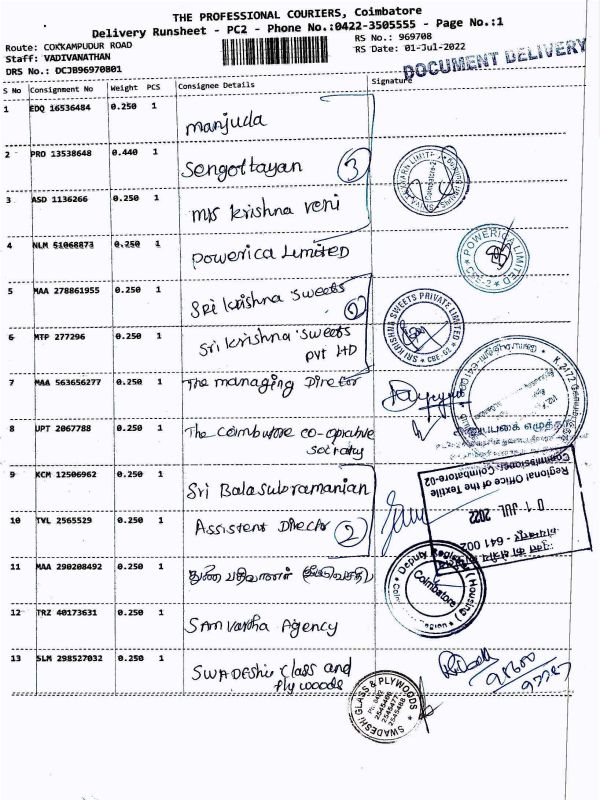 THE PROFESSIONAL COURIERS, Coimbatore
Delivery Runsheet - PC2 - Phone No.:0422-3505555 - Page No.:1
Route: COKKAMPUDUR ROAD
Staff: VADIVANATHAN
DRS No.: DCJB96970801
RS No.: 969708
RS Date: 01-Jul-2022
DOCUMENT DELIVERY
S No Consignment No Weight PCS Consignee Details Signature
1 EDQ 16536484 0.250 1 manjuda
2 PRO 13538648 0.440 1 Sengottayan 3
3 ASD 1136266 0.250 1 M/s Krishna veni
4 NLM 51068873 0.250 1 Powerica Limited
POWERICA LIMITED
CBE-2
5 MAA 278861955 0.250 1 SRi Krishna Sweets 2
6 MTP 277296 0.250 1 Sri Krishna Sweets
pvt LTD
SRI KRISHNA SWEETS PRIVATE LIMITED
CBE-02
7 MAA 563656277 0.250 1 The managing Director
8 UPT 2067788 0.250 1 The coimbutore co-oprative
Socraty
9 KCM 12506962 0.250 1 Sri Balasubramanian
10 TVL 2565529 0.250 1 Assistent Director 2
Regional Office of the Textile
Commissioner, Coimbatore-02
01 JUL 2022
641 002
11 MAA 290208492 0.250 1 துணை பதிவாளர்
Deputy Registrar (Housing)
Coimbatore
12 TRZ 40173631 0.250 1 Samvartha Agency
13 SLM 298527032 0.250 1 SWADEShi Glass and
Plywoods
SWADESHI GLASS & PLYWOODS